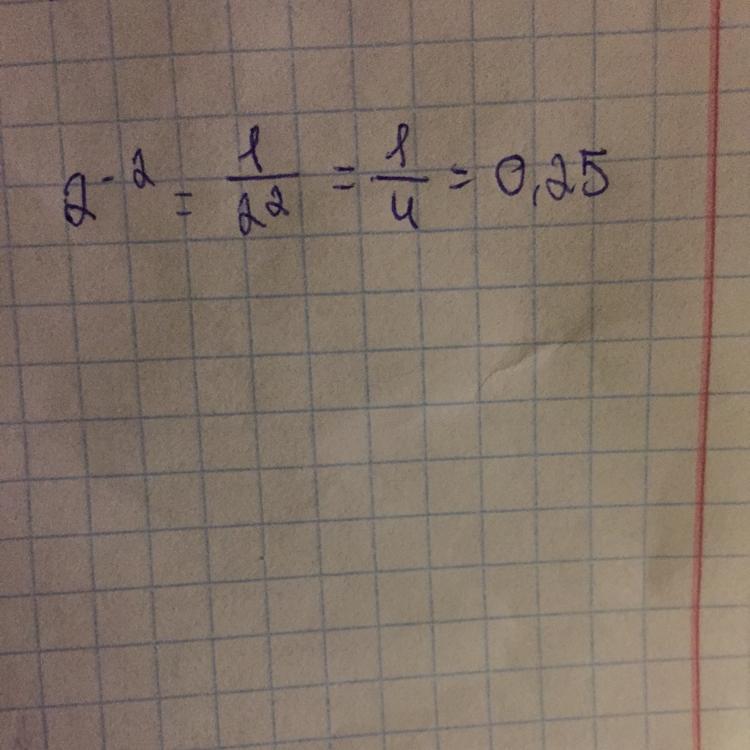 2^-2 = 1/2^2 = 1/4 = 0,25